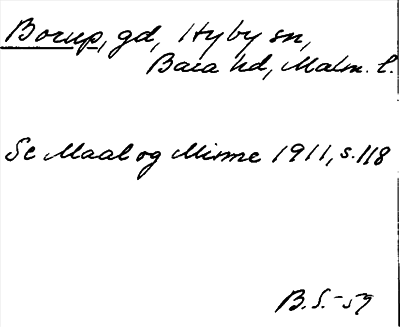 Borup, gd, Hyby sn,
Bara hd, Malm. l.
Se Maal og Minne 1911, s. 118
B.S. -59